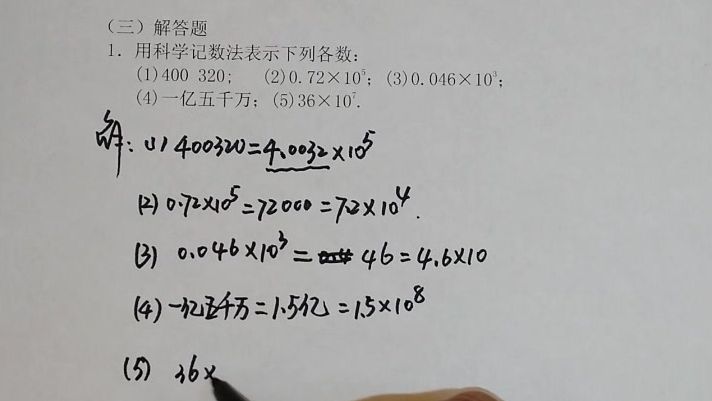 （三）解答题
1. 用科学记数法表示下列各数：
(1)400 320; (2)0.72×10⁵; (3)0.046×10³;
(4)一亿五千万; (5)36×10⁷.
解: (1) 400320=4.0032×10⁵
(2) 0.72×10⁵=72000=7.2×10⁴.
(3) 0.046×10³= 46=4.6×10
(4) 一亿五千万=1.5亿=1.5×10⁸
(5) 36×